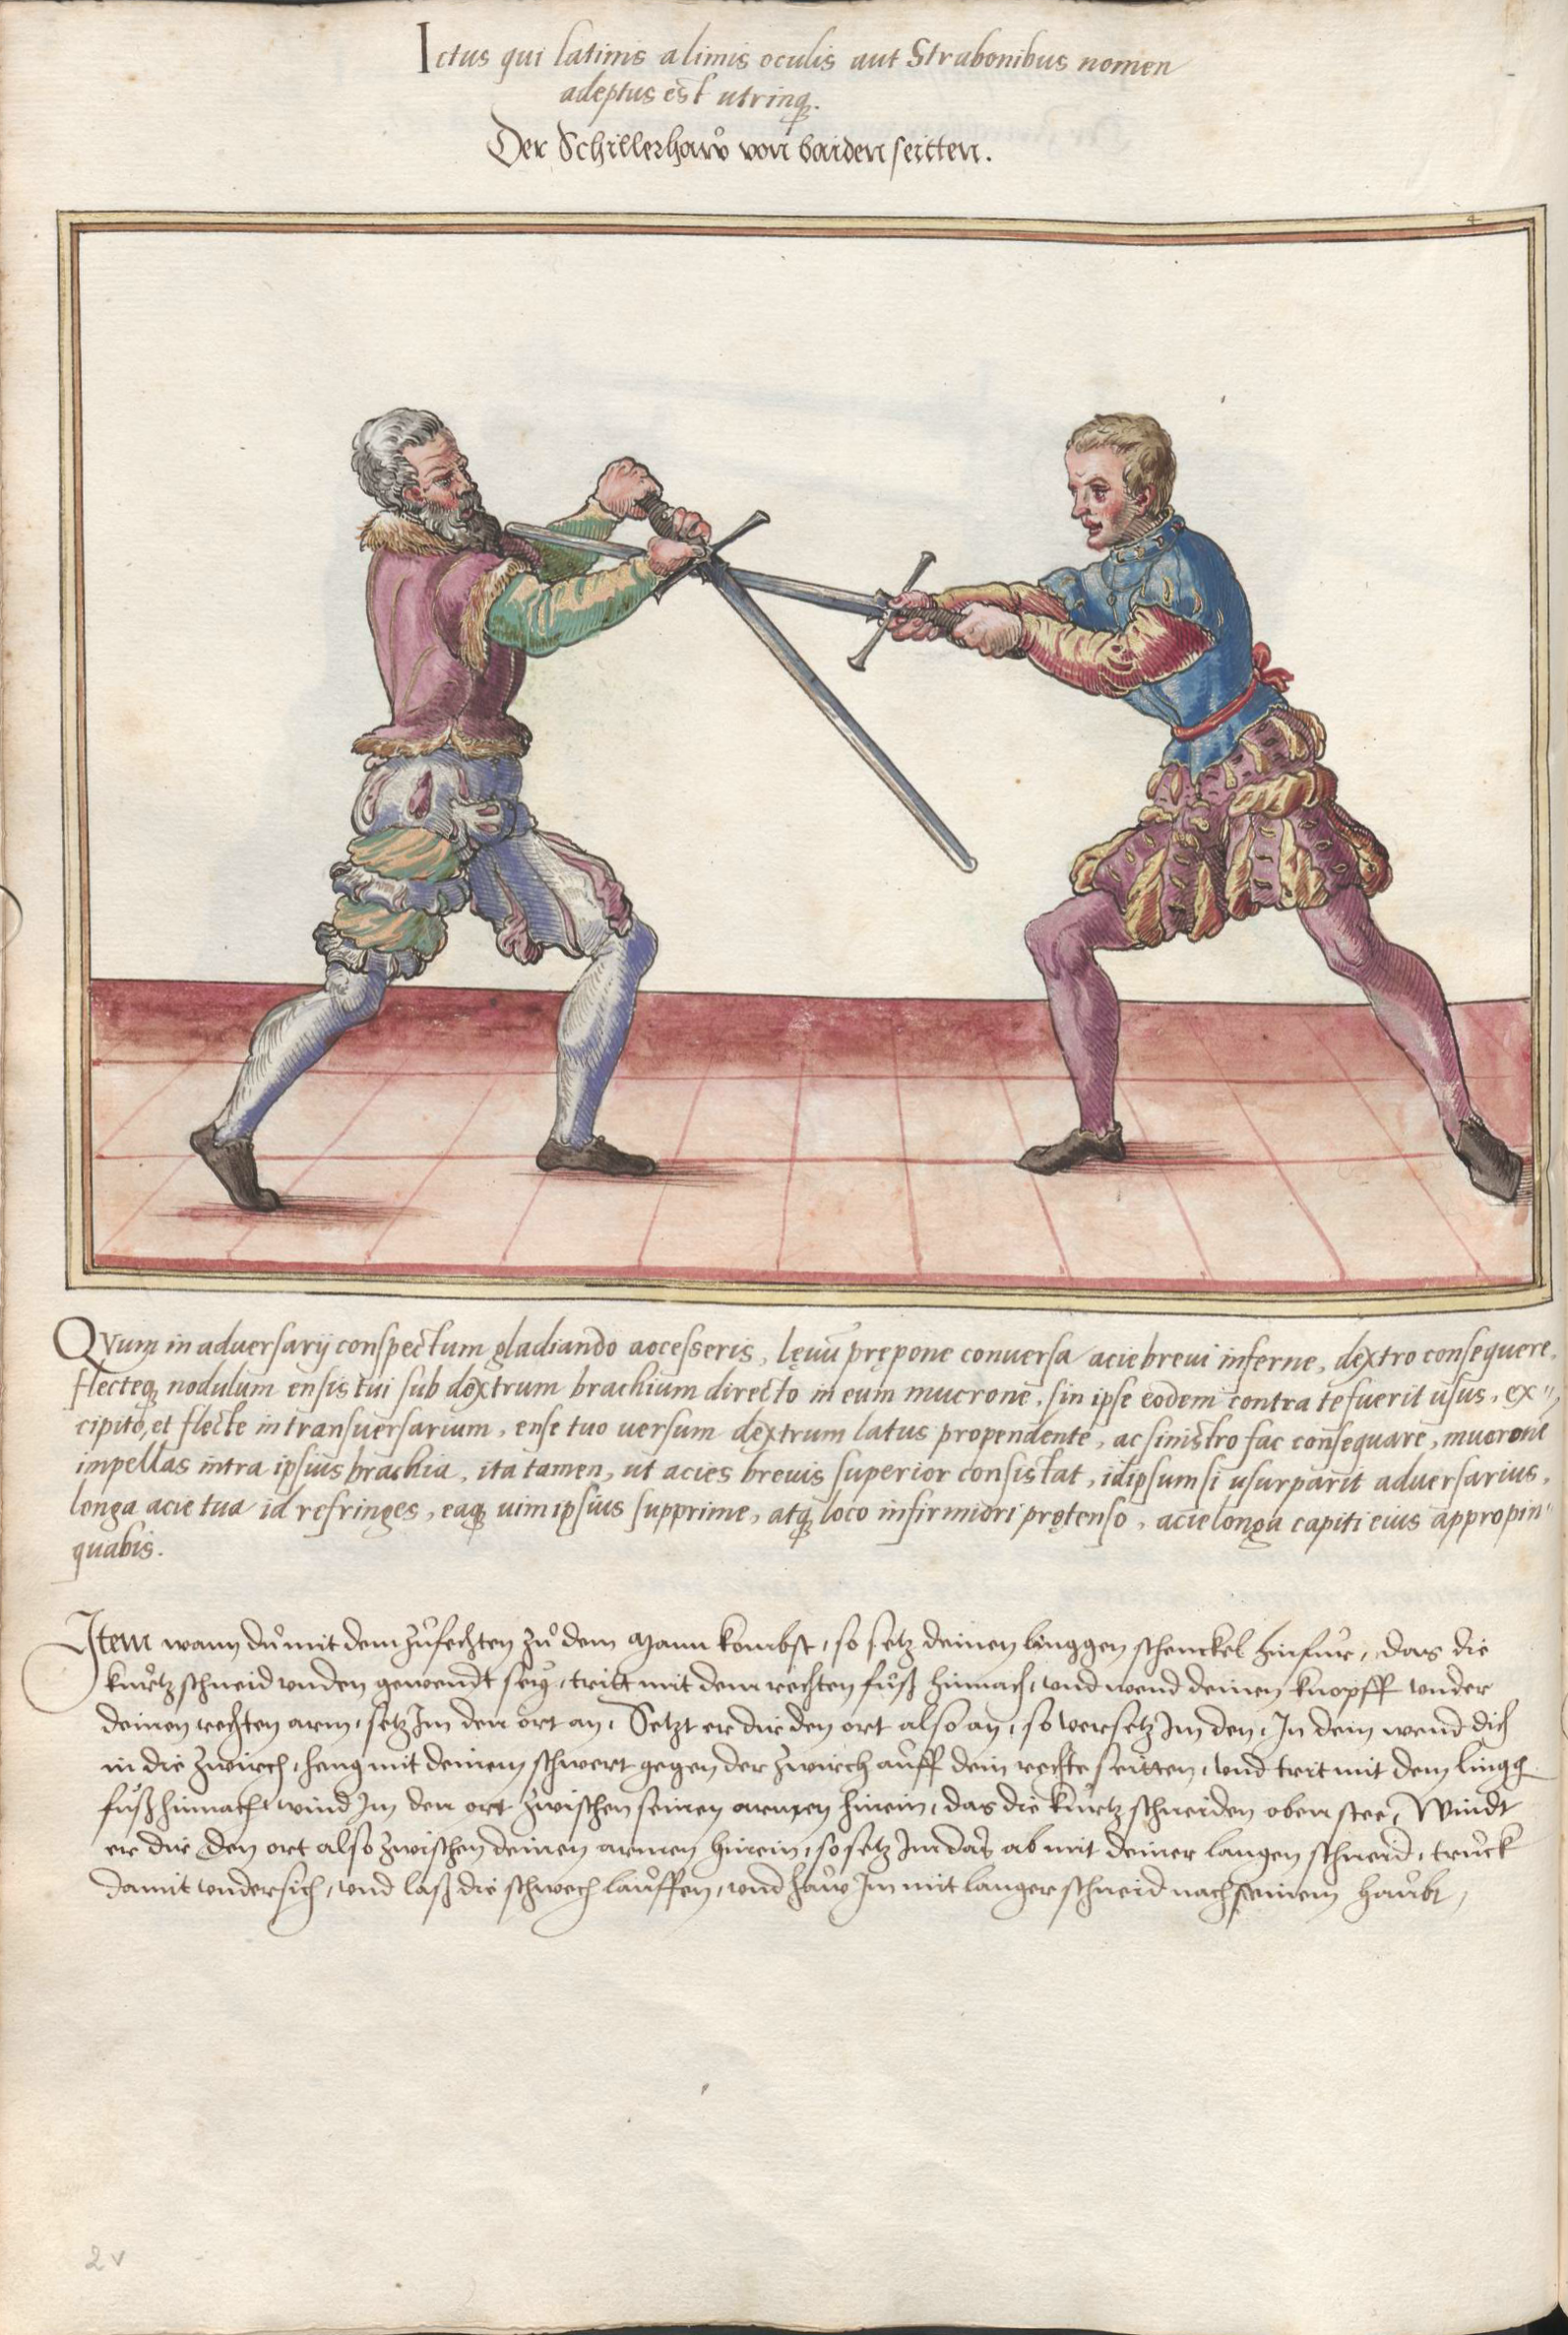 Ictus qui latinis a limis oculis aut Strabonibus nomen
adeptus est utrinq.
Der Schillerhaw von baiden seitten.
4
Qvum in adversarij conspectum gladiando accesseris, lęvū prępone conversa acie brevi inferne, dextro consequere,
flecteq nodulum ensis tui sub dextrum brachium directo in eum mucrone, sin ipse eodem contra te fuerit usus, ex"
cipito, et flecte in transversarium, ense tuo versum dextrum latus propendente, ac sinistro fac consequare, mucrone
impellas intra ipsius brachia, ita tamen, ut acies brevis superior consistat, id ipsum si usurparit adversarius,
longa acie tua id refringes, eaq vim ipsius supprime, atq loco infirmiori prętenso, acie longa capiti eius appropin"
quabis.
Item wann dů mit dem zůfechten zů dem Mann kombst, so setz deinen linggen schenckel hinfůr, das die
kůrtz schneid unden gewendt seÿ, tritt mit dem rechten fůß hinnach, und wend deinen knopff under
deinen rechten arm, setz Im den ort an, Setzt er dir den ort also an, so versetz Im den, In dem wend dich
in die zwirch, heng mit deinem schwert gegen der zwirch auff dein rechte seitten, und trit mit dem lingg
fůß hinnach, wind Im den ort zwischen seinen armen hinein, das die kůrtz schneiden oben stee, Windt
er dir den ort also zwischen deinen armen hinein, so setz Im das ab mit deiner langen schneid, trůck
damit undersich, und laß die schwech lauffen, und haw Im mit langer schneid nach seinem haubt,
2v